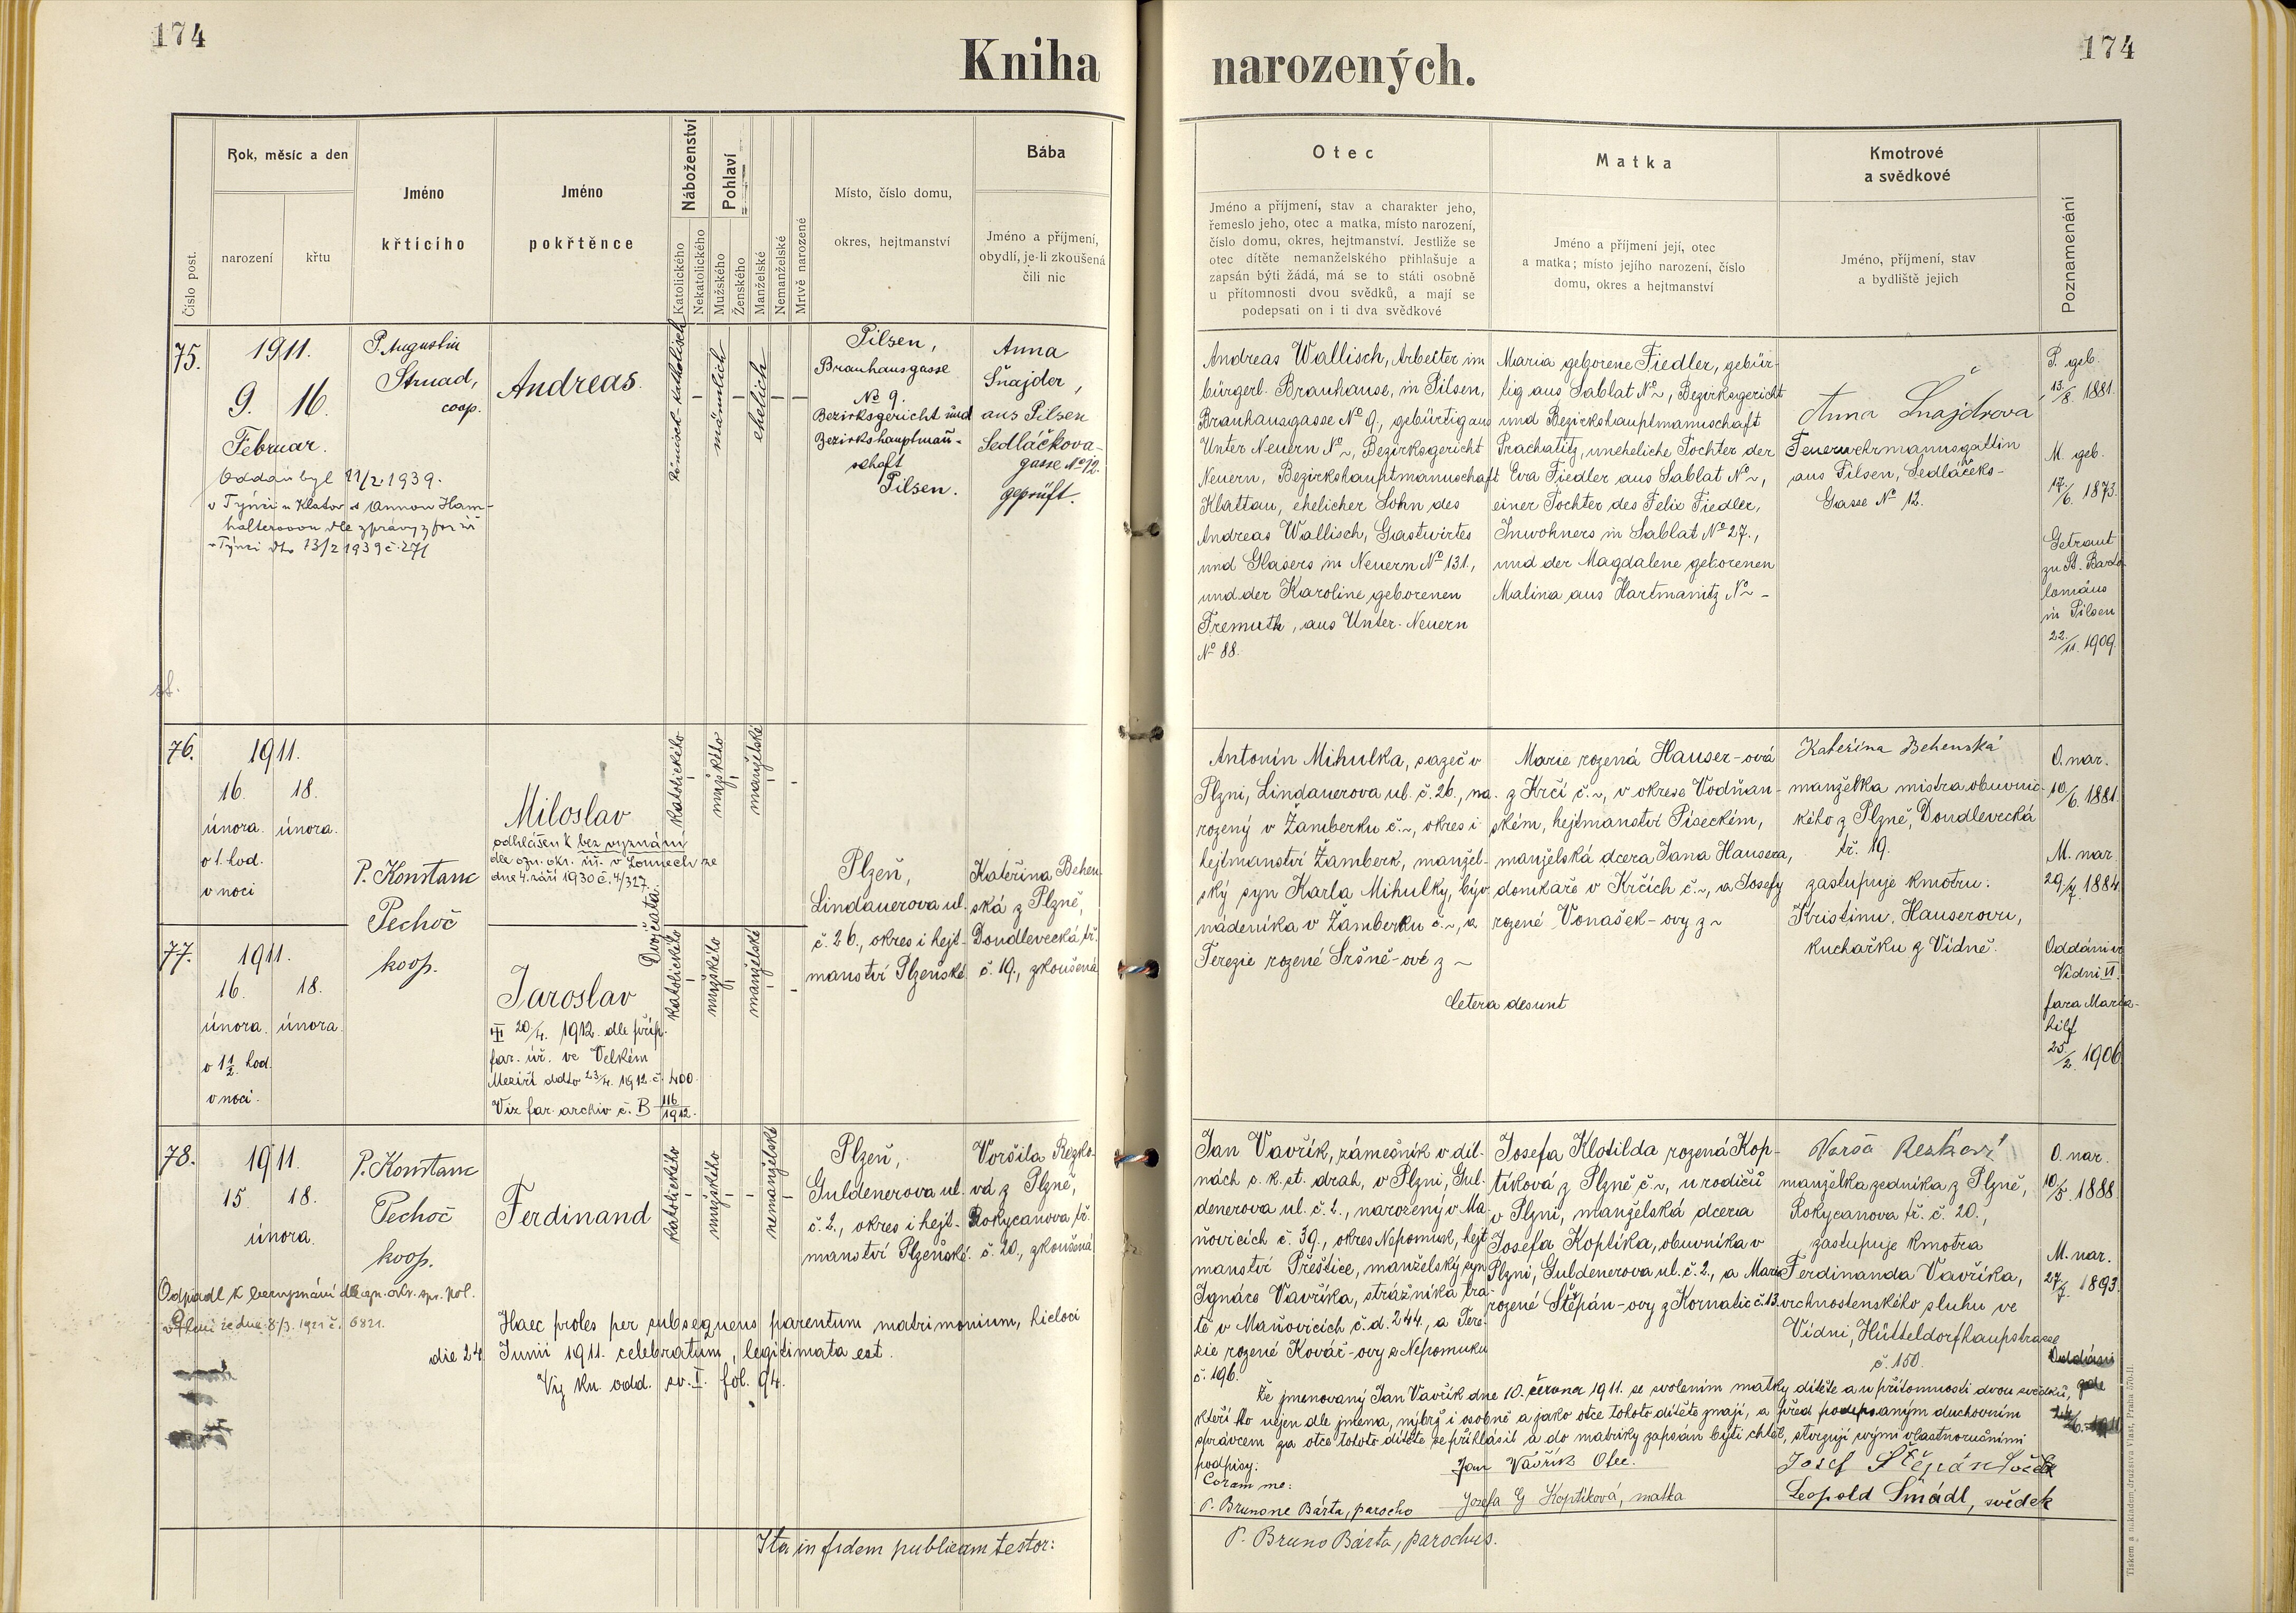 174
Kniha
narozených.
174
Číslo post.
Rok, měsíc a den
narození
křtu
Jméno
křticího
Jméno
pokřtěnce
Náboženství
Katolického
Nekatolického
Pohlaví
Mužského
Ženského
Manželské
Nemanželské
Mrtvě narozené
Místo, číslo domu,
okres, hejtmanství
Bába
Jméno a příjmení,
obydlí, je-li zkoušená
čili nic
Otec
Jméno a příjmení, stav a charakter jeho,
řemeslo jeho, otec a matka, místo narození,
číslo domu, okres, hejtmanství. Jestliže se
otec dítěte nemanželského přihlašuje a
zapsán býti žádá, má se to státi osobně
u přítomnosti dvou svědků, a mají se
podepsati on i ti dva svědkové
Matka
Jméno a příjmení její, otec
a matka; místo jejího narození, číslo
domu, okres a hejtmanství
Kmotrové
a svědkové
Jméno, příjmení, stav
a bydliště jejich
Poznamenání
75.
1911.
9. 16.
Februar.
Oddán byl 11/2 1939.
v Týnci u Klatov s Annou Ham-
halterovou dle zprávy z far. úř.
v Týnci dto 13/2 1939 č. 271
P. Augustin
Strnad,
coop.
Andreas.
römisch-katholisch
männlich
ehelich
Pilsen,
Brauhausgasse
No 9.
Bezirksgericht und
Bezirkshauptmann-
schaft
Pilsen.
Anna
Šnajder,
aus Pilsen
Sedláčkova-
gasse No 12.
geprüft.
Andreas Wallisch, Arbeiter im
bürgerl. Brauhause, in Pilsen,
Brauhausgasse No 9, gebürtig aus
Unter Neuern No ~, Bezirksgericht
Neuern, Bezirkshauptmannschaft
Klattau, ehelicher Sohn des
Andreas Wallisch, Gastwirtes
und Glasers in Neuern No 131.,
und der Karoline geborenen
Fremuth, aus Unter-Neuern
No 88.
Maria geborene Fiedler, gebür-
tig aus Sablat No ~, Bezirksgericht
und Bezirkshauptmannschaft
Prachatitz, uneheliche Tochter der
Eva Fiedler aus Sablat No ~,
einer Tochter des Felix Fiedler,
Inwohners in Sablat No 27.,
und der Magdalene geborenen
Malina aus Hartmanitz No ~ -
Anna Šnajdrova
Feuerwehrmannsgattin
aus Pilsen, Sedláčeks-
Gasse No 12.
P. geb.
13./8. 1881.
M. geb.
17./6. 1873.
Getraut
zu St. Barto-
lomäus
in Pilsen
22./11. 1909.
76.
1911.
16. 18.
února. února.
o 1. hod.
v noci
P. Konstanc
Pechoč
koop.
Miloslav
odhlášen k bez vyznání
dle ozn. okr. úř. v Lounech ze
dne 4. září 1930 č. 4/327.
Dvojčata.
katolického
mužského
manželské
Plzeň,
Lindauerova ul.
č. 26., okres i hejt-
manství Plzeňské.
Kateřina Behen-
ská z Plzně,
Doudlevecká tř.
č. 19., zkoušená
77.
1911.
16. 18.
února. února.
o 1½. hod.
v noci.
Jaroslav
20/4. 1912. dle příp.
far. úř. ve Velkém
Meziří ddto 23/4. 1912 č. 400.
Viz far. archiv č. B 116/1912.
katolického
mužského
manželské
Antonín Mihulka, sazeč v
Plzni, Lindauerova ul. č. 26., na-
rozený v Žamberku č. ~, okres i
hejtmanství Žamberk, manžel-
ský syn Karla Mihulky, býv.
nádeníka v Žamberku č. ~, a
Terezie rozené Sršně-ové z ~
Cetera desunt
Marie rozená Hauser-ová
z Krčí č. ~, v okrese Vodňan-
ském, hejtmanství Píseckém,
manželská dcera Jana Hausera,
domkaře v Krčích č. ~, a Josefy
rozené Vonašek-ovy z ~
Kateřina Behenská
manželka mistra obuvnic-
kého z Plzně, Doudlevecká
tř. 19.
zastupuje kmotru:
Kristinu Hauserovu,
kuchařku z Vídně.
O. nar.
10/6. 1881.
M. nar.
29/7. 1884.
Oddáni ve
Vídni VI.
fara Maria-
hilf
25/2. 1906.
78.
1911.
15. 18.
února.
Odpadl k bezvyznání dle ozn. okr. spr. pol.
v Plzni ze dne 8/3. 1921 č. 6821.
P. Konstanc
Pechoč
koop.
Ferdinand
katolického
mužského
nemanželské
Plzeň,
Guldenerova ul.
č. 2., okres i hejt-
manství Plzeňské.
Voršila Rezko-
vá z Plzně,
Rokycanova tř.
č. 20., zkoušená
Haec proles per subsequens parentum matrimonium, hicloci
die 24 Junii 1911. celebratum, legitimata est.
Viz kn. odd. sv. I. fol. 94.
Jan Vavřík, zámečník v díl-
nách c. k. st. drah, v Plzni, Gul-
denerova ul. č. 2., narozený v Ma-
ňovicích č. 39., okres Nepomuk, hejt-
manství Přeštice, manželský syn
Ignáce Vavříka, strážníka tra-
tě v Maňovicích č. d. 244., a Tere-
zie rozené Kováč-ovy z Nepomuku
č. 196.
Josefa Klotilda rozená Kop-
tíková z Plzně č. ~, u rodičů
v Plzni, manželská dcera
Josefa Koptíka, obuvníka v
Plzni, Guldenerova ul. č. 2., a Marie
rozené Štěpán-ovy z Kornatic č. 13.
manželka zedníka z Plzně,
Rokycanova tř. č. 20.,
zastupuje kmotra
Ferdinanda Vavříka,
vrchnostenského sluhu ve
Vídni, Hütteldorfhaupstrasse
č. 150.
O. nar.
10/5. 1888.
M. nar.
27/7. 1893.
Oddáni
Že jmenovaný Jan Vavřík dne 10. června 1911. se svolením matky dítěte a u přítomnosti dvou svědků,
kteří ho nejen dle jména, nýbrž i osobně a jako otce tohoto dítěte znají, a před podepsaným duchovním
správcem za otce tohoto dítěte se přihlásil a do matriky zapsán býti chtěl, stvrzují svými vlastnoručními
podpisy:
Jan Vavřík Otec.
Josef Štěpán
Coram me:
P. Brunone Bárta, parocho
Jozefa Koptíková, matka
Leopold Šmádl, svědek
Ita in fidem publicam testor:
P. Bruno Bárta, parochus.
Tiskem a nákladem družstva Vlast, Praha 570-II.